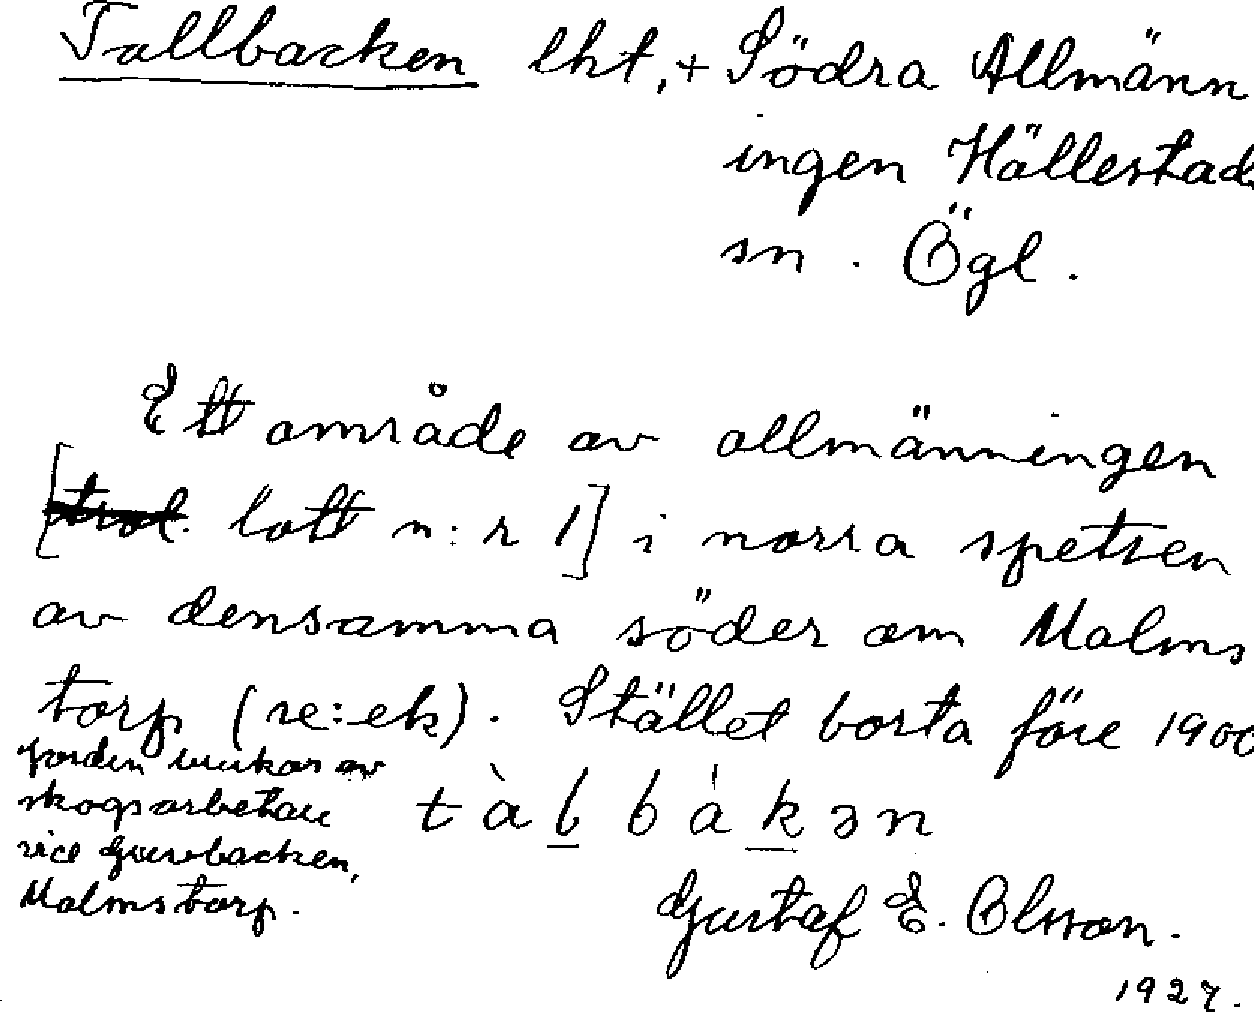 Tallbacken lht, + Södra Allmänn
ingen Hällestads
sn. Ögl.
Ett område av allmänningen
[trol. lott n:r 1] i norra spetsen
av densamma söder om Malms
torp (re:ek). Stället borta före 1900
Jorden brukas av
skogsarbetare
vice Gruvbacken,
Malmstorp.
tàl bákən
Gustaf E. Olsson.
1927.